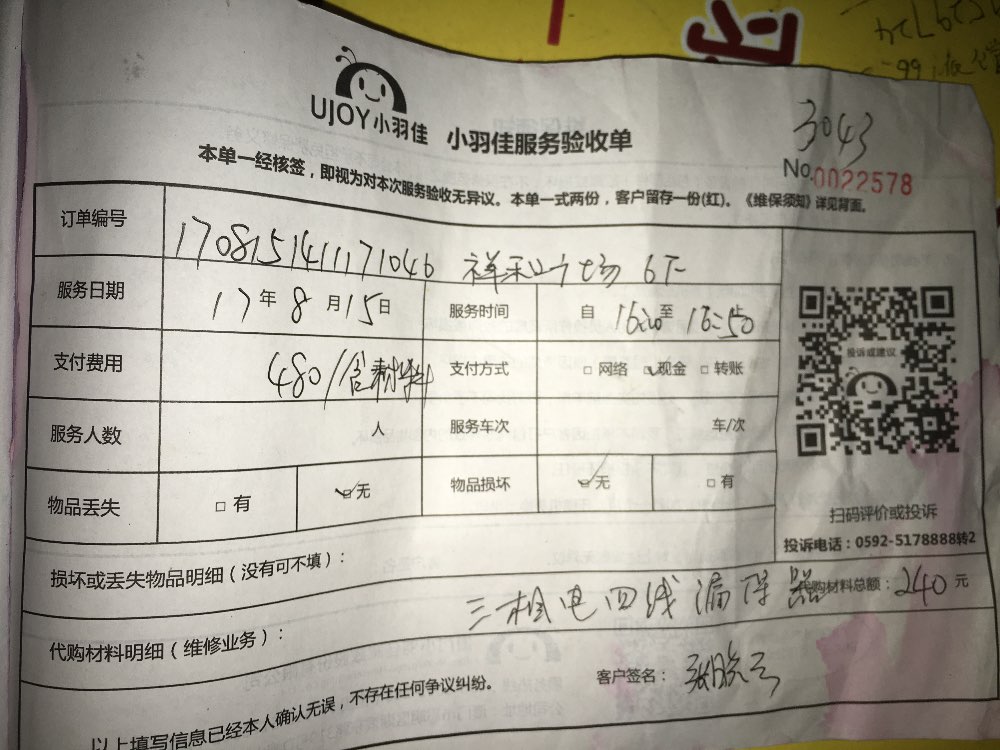 UJOY小羽佳 小羽佳服务验收单
3043
No.0022578
本单一经核签，即视为对本次服务验收无异议。本单一式两份，客户留存一份(红)。《维保须知》详见背面。
订单编号 170815141117 1046 祥和广场 6下
服务日期 17年8月15日 服务时间 自16:20至16:50
支付费用 480/含材料 支付方式 □网络 ☑现金 □转账
服务人数 人 服务车次 车/次
物品丢失 □有 ☑无 物品损坏 ☑无 □有
投诉或建议
扫码评价或投诉
投诉电话：0592-5178888转2
损坏或丢失物品明细（没有可不填）：
代购材料明细（维修业务）： 三相电四线漏保器 代购材料总额：240元
以上填写信息已经本人确认无误，不存在任何争议纠纷。 客户签名：